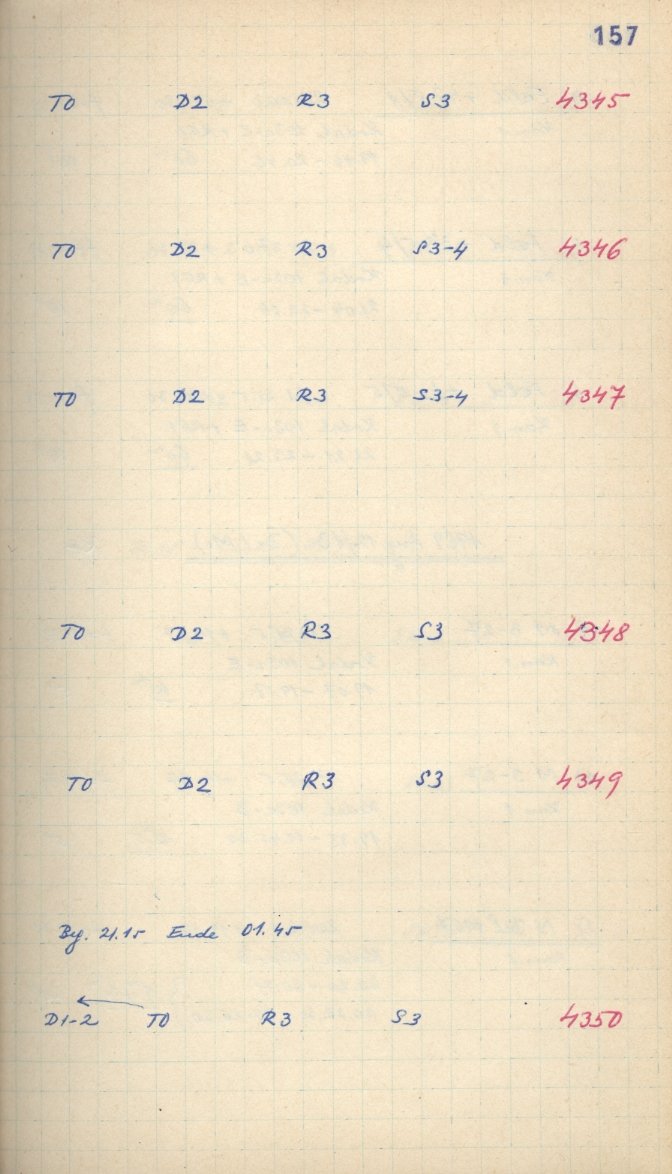 157
T0 D2 R3 S3 4345
T0 D2 R3 S3-4 4346
T0 D2 R3 S3-4 4347
T0 D2 R3 S3 4348
T0 D2 R3 S3 4349
Bg. 21.15 Ende 01.45
D1-2 T0 R3 S3 4350